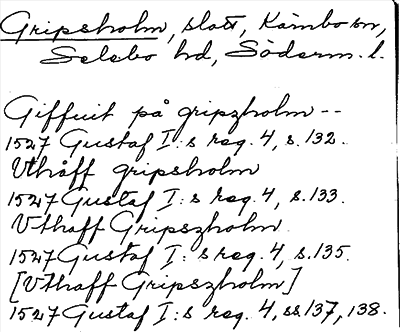 Gripsholm, slott, Kärnbo sn,
Selebo hd, Söderm. l.
Giffuit på gripzholm --
1527 Gustaf I:s reg. 4, s. 132.
Vthåff gripsholm
1527 Gustaf I:s reg. 4, s. 133.
Vthaff Gripszholm
1527 Gustaf I:s reg. 4, s. 135.
[Vthaff Gripszholm]
1527 Gustaf I:s reg. 4, ss. 137, 138.